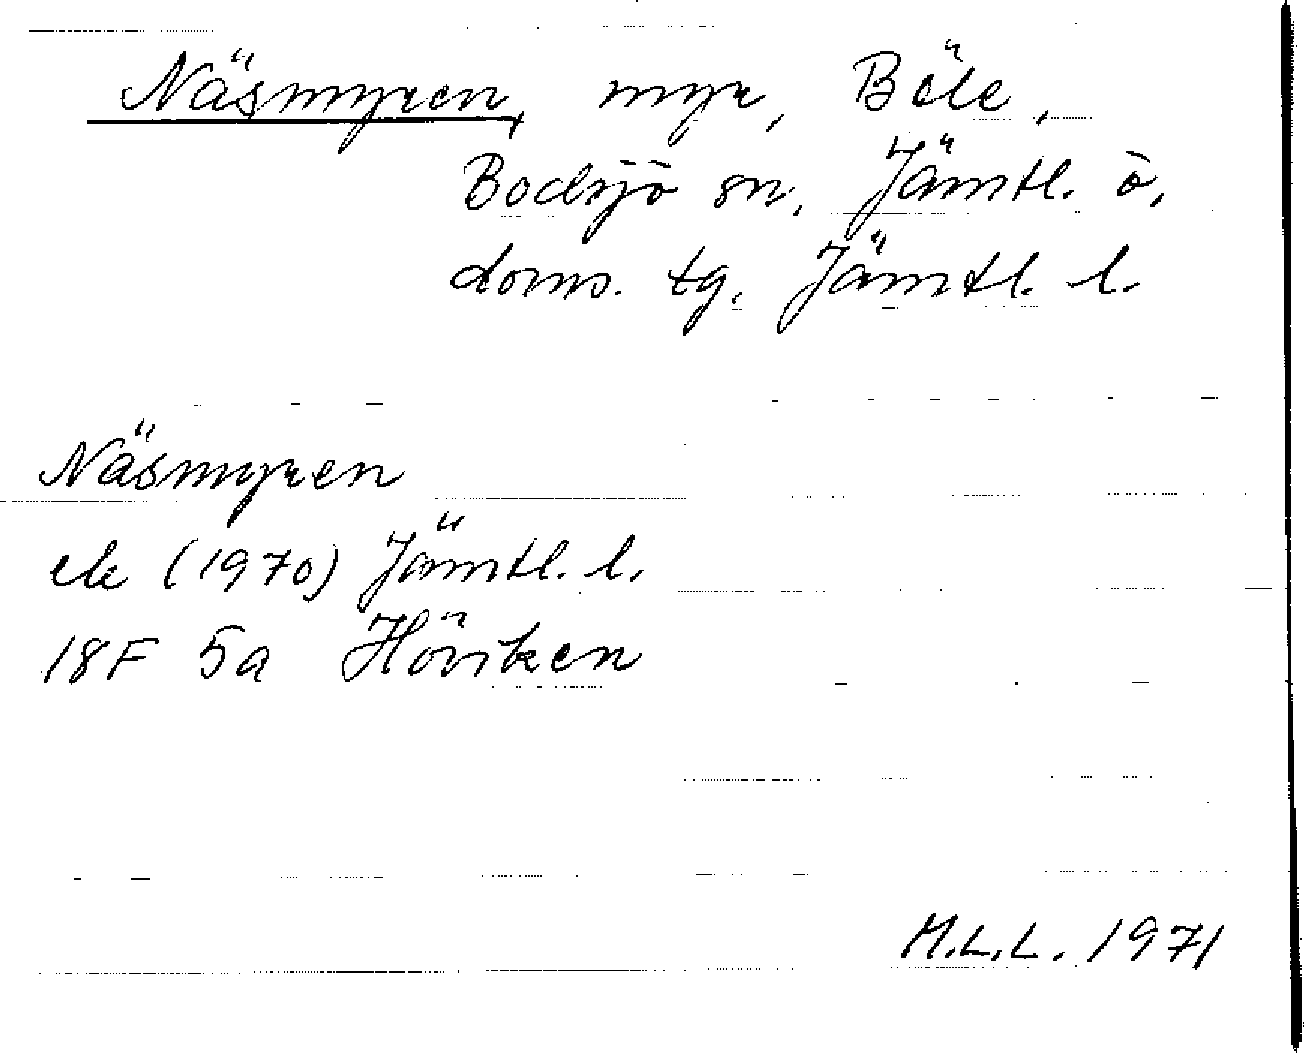 Näsmyren, myr, Böle,
Bodsjö sn, Jämtl. ö.
doms. tg, Jämtl. l.
Näsmyren
ek (1970) Jämtl. l.
18F 5a Höviken
M.L.L. 1971